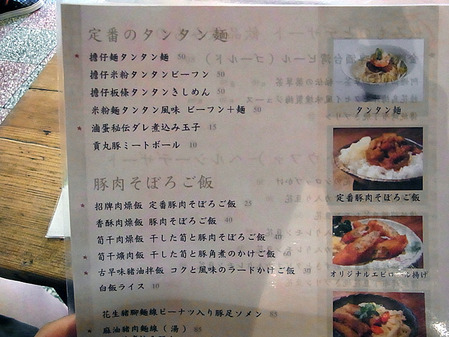 定番のタンタン麺
擔仔麺タンタン麺 50
擔仔米粉タンタンビーフン 50
擔仔板條タンタンきしめん 50
米粉麺タンタン風味 ビーフン+麺 50
滷蛋秘伝ダレ煮込み玉子 15
貢丸豚ミートボール 10
豚肉そぼろご飯
招牌肉燥飯 定番豚肉そぼろご飯 25
香酥肉燥飯 豚肉そぼろご飯 40
筍干肉燥飯 干した筍と豚肉そぼろご飯 40
筍干爌肉飯 干した筍と豚角煮のかけご飯 60
古早味猪油拌飯 コクと風味のラードかけご飯 30
白飯ライス 10
花生豬腳麵線ピーナツ入り豚足ソメン 85
麻油豬肉麵線(湯) 85
タンタン麺
定番豚肉そぼろご飯
オリジナルエビロール揚げ